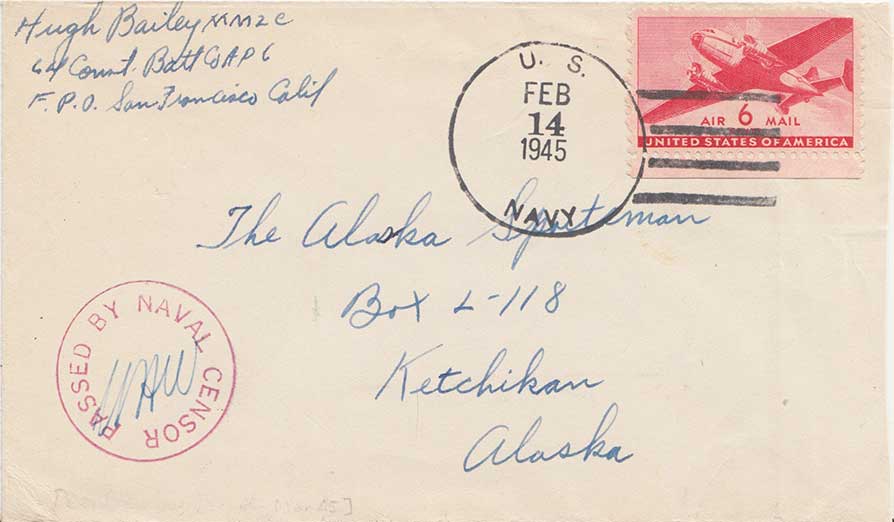 Hugh Bailey MM2C
64 Const. Batt Co A P 6
F. P. O. San Francisco Calif
U. S.
FEB
14
1945
NAVY
AIR 6 MAIL
UNITED STATES OF AMERICA
The Alaska Sportsman
Box L-118
Ketchikan
Alaska
PASSED BY NAVAL CENSOR